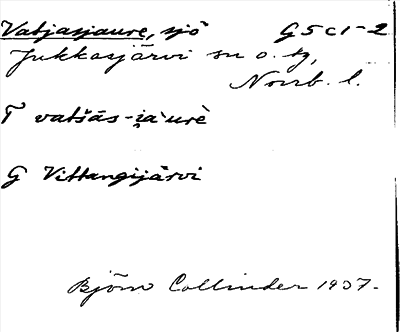 Vatjasjaure, sjö G5c1-2
Jukkasjärvi sn o. tg,
Norrb. l.
T vatšás-ja`urè
G Vittangijärvi
Björn Collinder 1937.